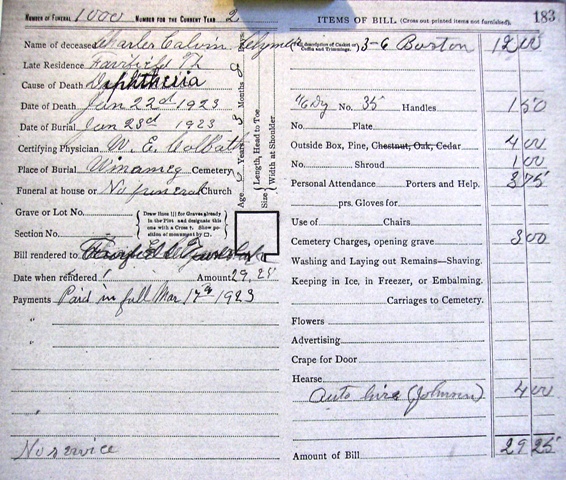 NUMBER OF FUNERAL 1000 NUMBER FOR THE CURRENT YEAR 2
Name of deceased Charles Calvin
Late Residence Fairfield Tp
Cause of Death Diphtheria
Date of Death Jan 22d 1923
Date of Burial Jan 23d 1923
Certifying Physician W. E.
Place of Burial Winameg Cemetery
Funeral at house or No funeral Church
Grave or Lot No.
Section No.
Draw lines ||| for Graves already in the Plot and designate this one with a Cross ?. Show position of monument by □.
Bill rendered to
Date when rendered " Amount 29,25
Payments Paid in full Mar 17th 1923
"
"
"
No service
Age Years Months Days
Size { Length, Head to Toe
Width at Shoulder
ITEMS OF BILL (Cross out printed items not furnished). 183
Full description of Casket or Coffin and Trimmings. 3-6 Burton 12 00
No. 35 Handles 1 50
No. Plate
Outside Box, Pine, Chestnut, Oak, Cedar 4 00
No. Shroud 1 00
Personal Attendance Porters and Help. 3 75
prs. Gloves for
Use of Chairs.
Cemetery Charges, opening grave 3 00
Washing and Laying out Remains—Shaving.
Keeping in Ice, in Freezer, or Embalming.
Carriages to Cemetery.
Flowers
Advertising
Crape for Door
Hearse
Auto hire (Johnson) 4 00
Amount of Bill 29 25